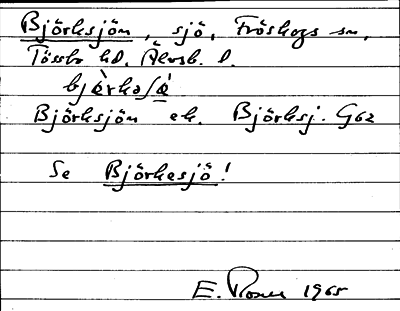 Björksjön, sjö, Fröskogs sn,
Tössbo hd. Älvsb. l.
Björksjön ek. Björksj. G62
Se Björkesjö!
E. 1965